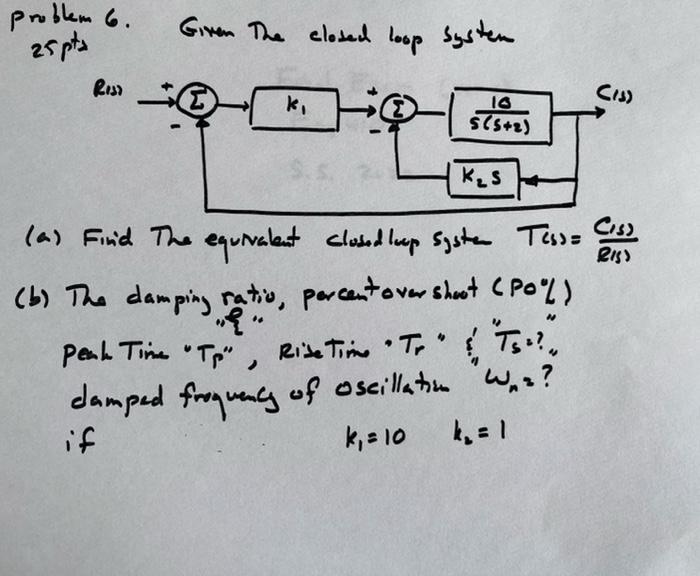 Problem 6. Given The closed loop system
25 pts
R(s) + Σ - K1 + Σ - 10 / s(s+2) C(s)
K2 s
(a) Find The equivalent closed loop system T(s) = C(s) / R(s)
(b) The damping ratio, percent overshoot (PO%)
"ξ"
peak Time "Tp", Rise Time "Tr" & "Ts=?"
damped frequency of oscillation "Wn=?"
if K1 = 10 K2 = 1